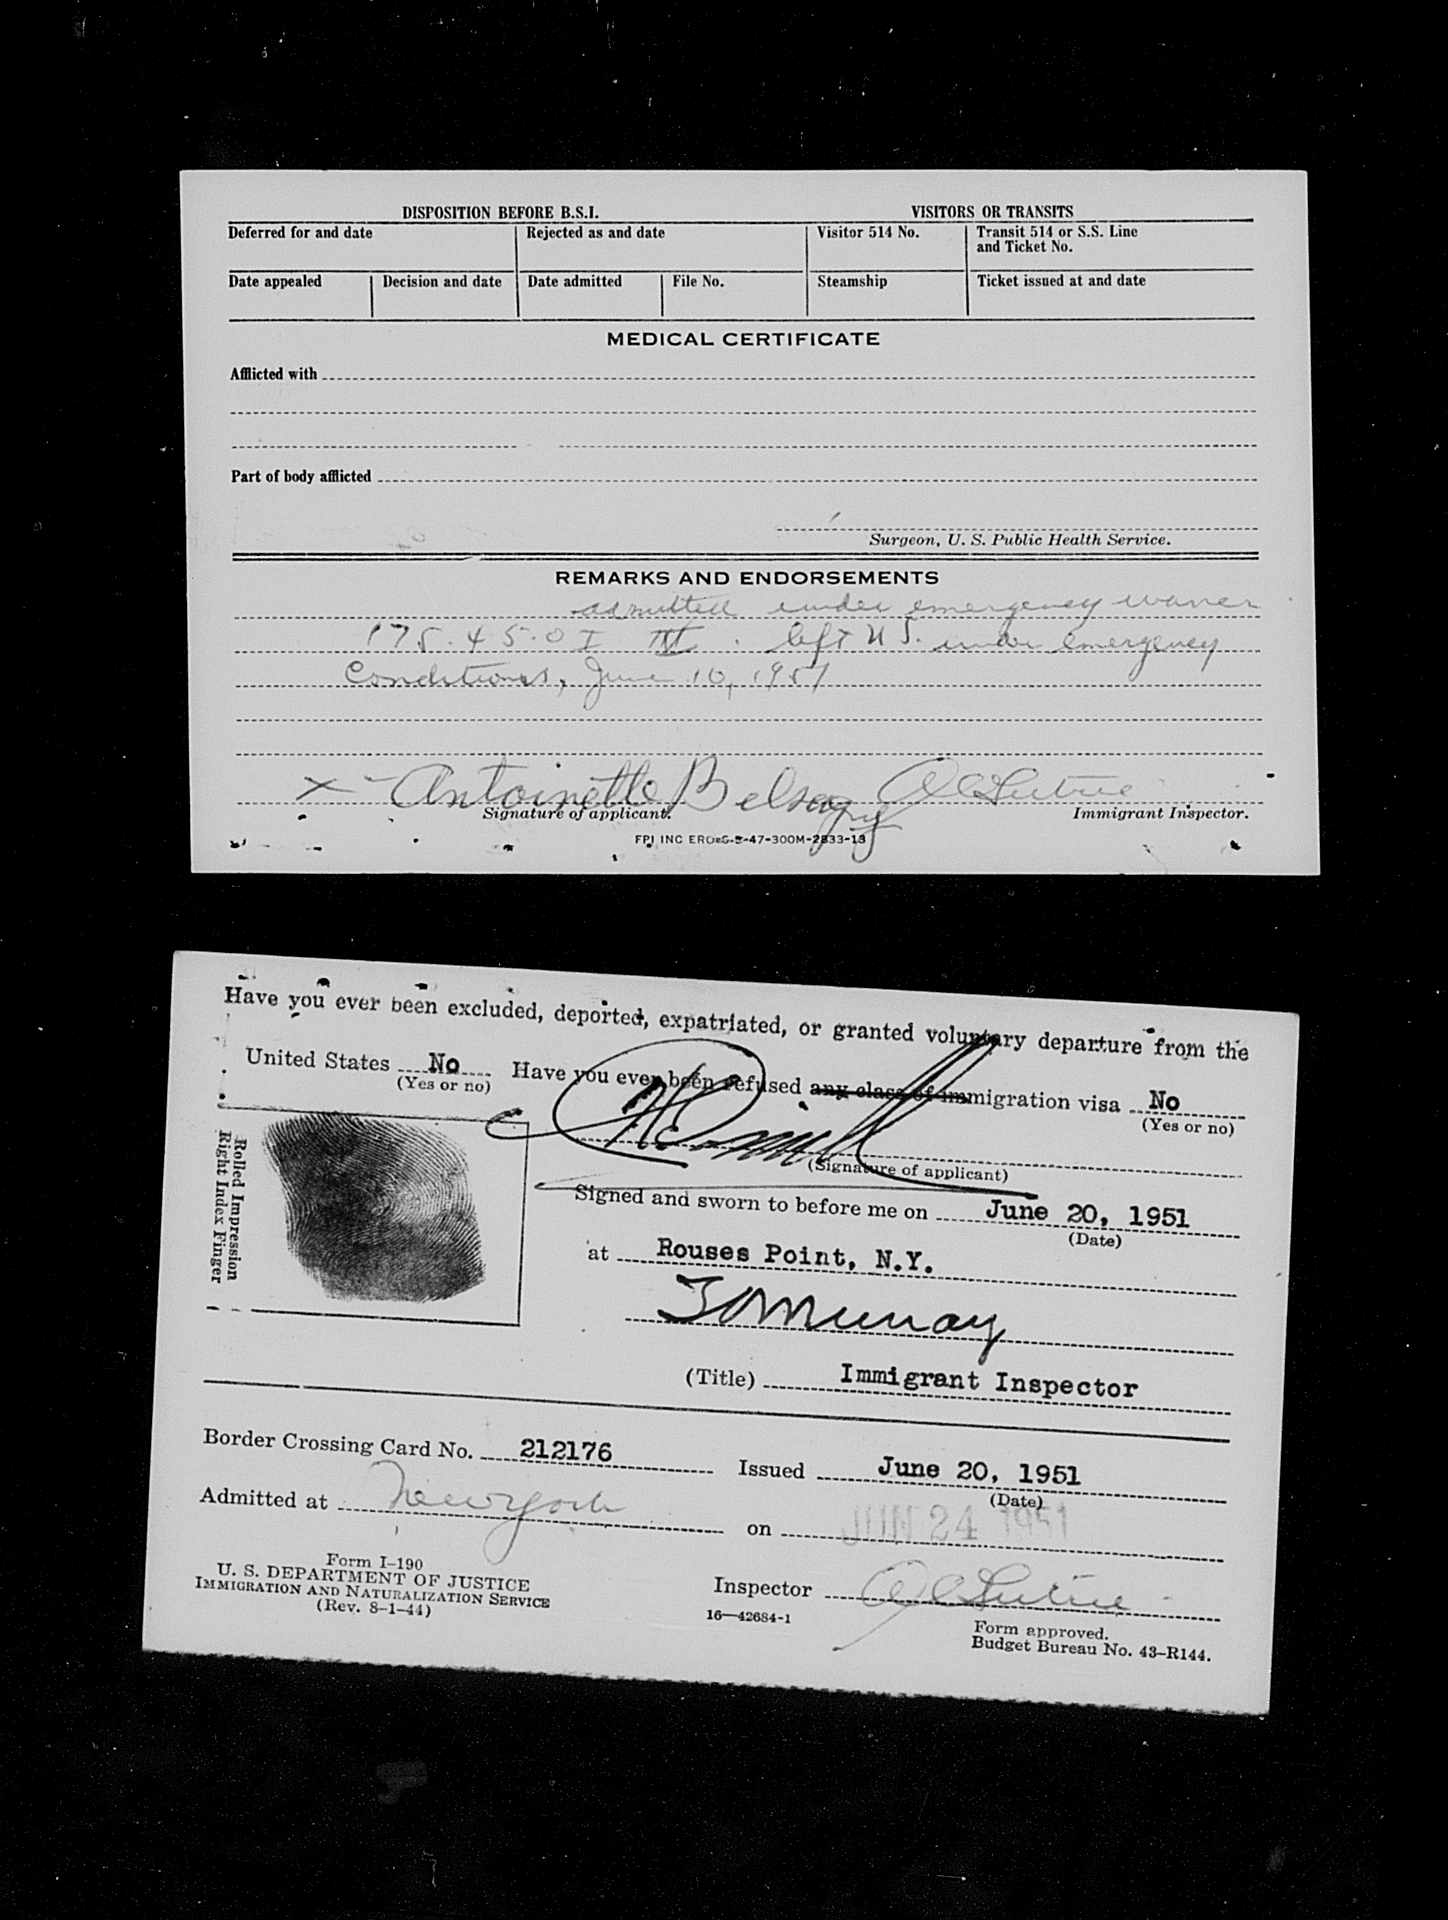 DISPOSITION BEFORE B.S.I. VISITORS OR TRANSITS
Deferred for and date Rejected as and date Visitor 514 No. Transit 514 or S.S. Line
and Ticket No.
Date appealed Decision and date Date admitted File No. Steamship Ticket issued at and date
MEDICAL CERTIFICATE
Afflicted with
Part of body afflicted
Surgeon, U. S. Public Health Service.
REMARKS AND ENDORSEMENTS
admitted under emergency waiver
175.45. left U S. under emergency
Conditions, June 10, 1951
x - Antoinette
Signature of applicant. Immigrant Inspector.
FPI INC 5-47-300M-2833-13
Have you ever been excluded, deported, expatriated, or granted voluntary departure from the
United States No Have you ever been refused any class of immigration visa No
(Yes or no) (Yes or no)
Rolled Impression
Right Index Finger
(Signature of applicant)
Signed and sworn to before me on June 20, 1951
(Date)
at Rouses Point, N.Y.
Murray
(Title) Immigrant Inspector
Border Crossing Card No. 212176 Issued June 20, 1951
(Date)
Admitted at New York on JUN 24 1951
Form I-190
U. S. DEPARTMENT OF JUSTICE
IMMIGRATION AND NATURALIZATION SERVICE
(Rev. 8-1-44)
Inspector
16—42684-1
Form approved.
Budget Bureau No. 43-R144.